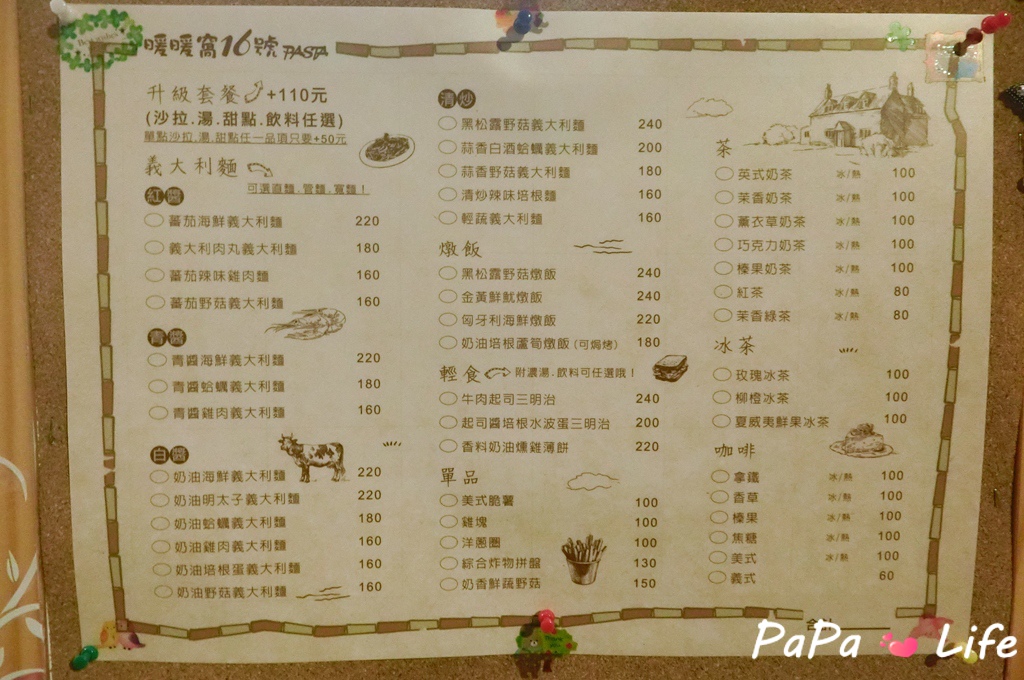 暖暖窩16號 PASTA
升級套餐 +110元
(沙拉.湯.甜點.飲料任選)
單點沙拉.湯.甜點任一品項只要+50元
義大利麵
可選直麵.管麵.寬麵！
紅醬
蕃茄海鮮義大利麵 220
義大利肉丸義大利麵 180
蕃茄辣味雞肉麵 160
蕃茄野菇義大利麵 160
青醬
青醬海鮮義大利麵 220
青醬蛤蠣義大利麵 180
青醬雞肉義大利麵 160
白醬
奶油海鮮義大利麵 220
奶油明太子義大利麵 220
奶油蛤蠣義大利麵 180
奶油雞肉義大利麵 160
奶油培根蛋義大利麵 160
奶油野菇義大利麵 160
清炒
黑松露野菇義大利麵 240
蒜香白酒蛤蠣義大利麵 200
蒜香野菇義大利麵 180
清炒辣味培根麵 160
輕蔬義大利麵 160
燉飯
黑松露野菇燉飯 240
金黃鮮魷燉飯 240
匈牙利海鮮燉飯 220
奶油培根蘆筍燉飯(可焗烤) 180
輕食 附濃湯.飲料可任選哦！
牛肉起司三明治 240
起司醬培根水波蛋三明治 200
香料奶油燻雞薄餅 220
單品
美式脆薯 100
雞塊 100
洋蔥圈 100
綜合炸物拼盤 130
奶香鮮蔬野菇 150
茶
英式奶茶 冰/熱 100
茉香奶茶 冰/熱 100
薰衣草奶茶 冰/熱 100
巧克力奶茶 冰/熱 100
榛果奶茶 冰/熱 100
紅茶 冰/熱 80
茉香綠茶 冰/熱 80
冰茶
玫瑰冰茶 100
柳橙冰茶 100
夏威夷鮮果冰茶 100
咖啡
拿鐵 冰/熱 100
香草 冰/熱 100
榛果 冰/熱 100
焦糖 冰/熱 100
美式 冰/熱 100
義式 60
PaPa Life